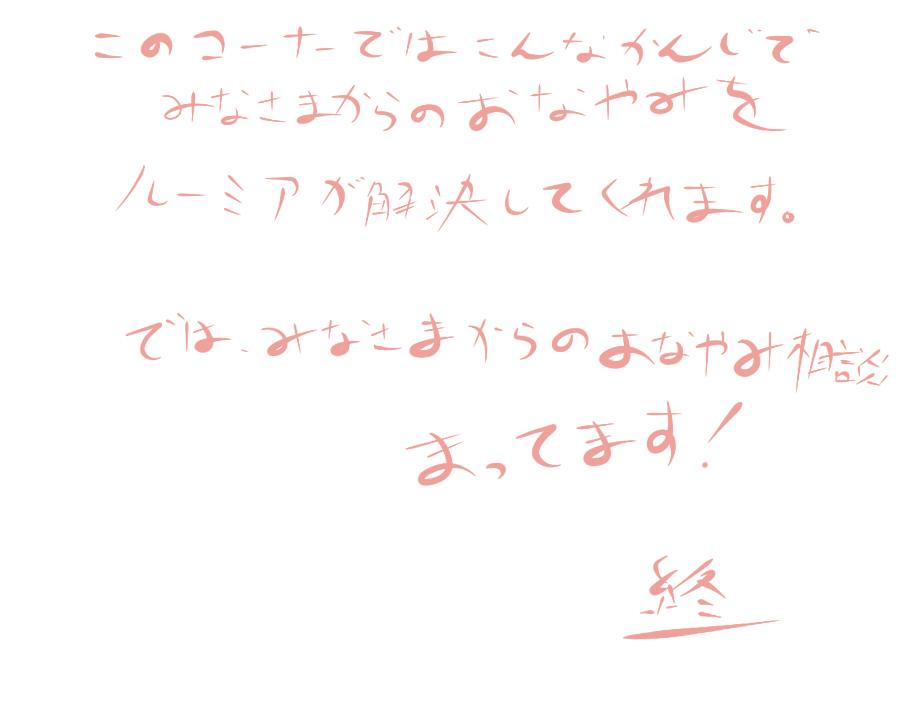 このコーナーではこんなかんじで
みなさまからのおなやみを
ルーミアが解決してくれます。
では、みなさまからのまなやみ相談
まってます!
終